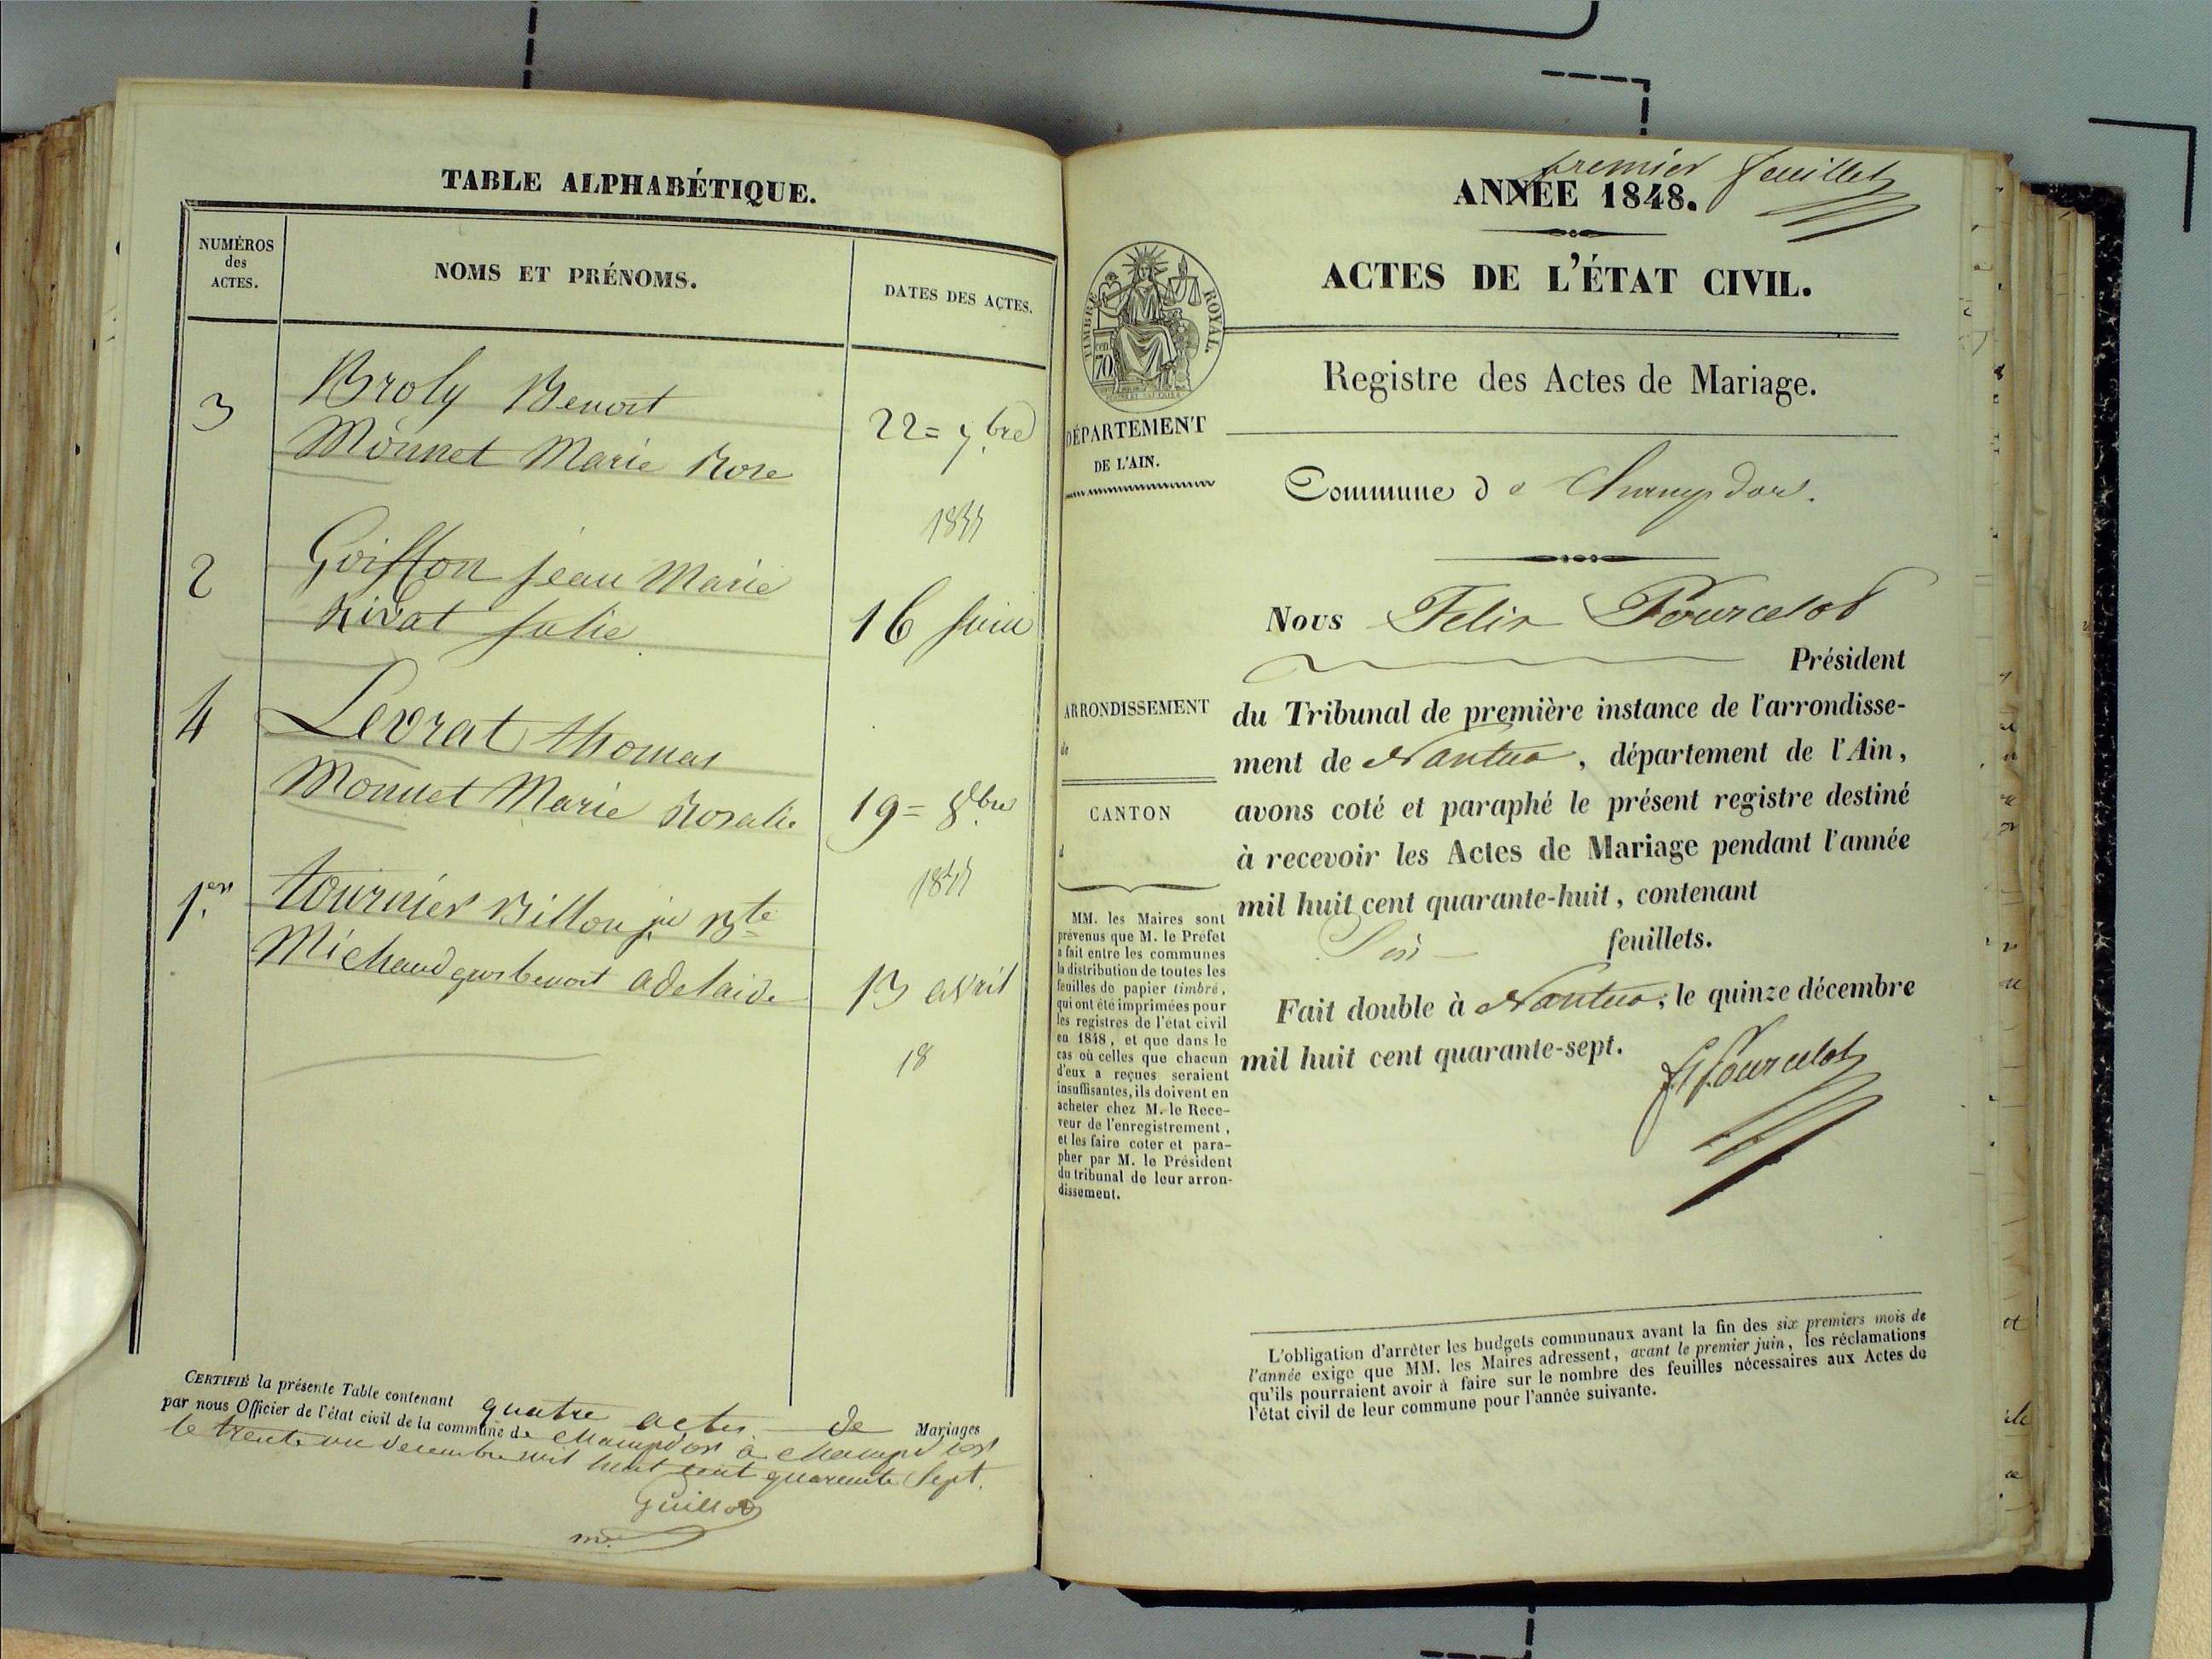 TABLE ALPHABÉTIQUE.
NUMÉROS
des
ACTES.
NOMS ET PRÉNOMS.
DATES DES ACTES.
3
Broly Benoit
Monnet Marie Rose
22 = 7.bre
2
Goiffon jean Marie
Rivat julie
16 juin
4
Levrat thomas
Monnet Marie Rosalie
19 = 8.bre
1.er
tournier Billon j.n B.te
Michaud benoit adelaide
13 avril
18
CERTIFIÉ la présente Table contenant quatre actes de Mariages
par nous Officier de l'état civil de la commune de champdor à champdor
le trente un decembre mil huit cent quarante sept.
Guillot
premier feuillet
ANNÉE 1848.
ACTES DE L'ÉTAT CIVIL.
TIMBRE ROYAL.
70
Registre des Actes de Mariage.
DÉPARTEMENT
DE L'AIN.
Commune de Champdor.
Nous Felix Pourcelot
Président
ARRONDISSEMENT
de
du Tribunal de première instance de l'arrondisse-
ment de Nantua, département de l'Ain,
avons coté et paraphé le présent registre destiné
à recevoir les Actes de Mariage pendant l'année
mil huit cent quarante-huit, contenant
Six feuillets.
Fait double à Nantua, le quinze décembre
mil huit cent quarante-sept.
F Pourcelot
CANTON
d
MM. les Maires sont
prévenus que M. le Préfet
a fait entre les communes
la distribution de toutes les
feuilles de papier timbré,
qui ont été imprimées pour
les registres de l'état civil
en 1848, et que dans le
cas où celles que chacun
d'eux a reçues seraient
insuffisantes, ils doivent en
acheter chez M. le Rece-
veur de l'enregistrement,
et les faire coter et para-
pher par M. le Président
du tribunal de leur arron-
dissement.
L'obligation d'arrêter les budgets communaux avant la fin des six premiers mois de
l'année exige que MM. les Maires adressent, avant le premier juin, les réclamations
qu'ils pourraient avoir à faire sur le nombre des feuilles nécessaires aux Actes de
l'état civil de leur commune pour l'année suivante.